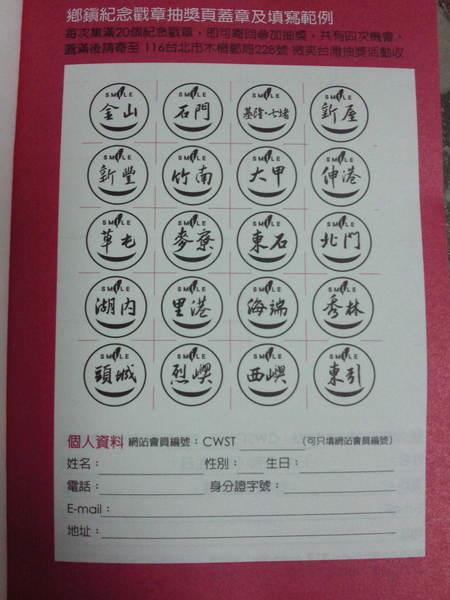 鄉鎮紀念戳章抽獎頁蓋章及填寫範例
每次集滿20個紀念戳章，即可寄回參加抽獎，共有四次機會，
蓋滿後請寄至 116台北市木柵郵局228號 微笑台灣抽獎活動收
SMILE SMILE SMILE SMILE
金山 石門 基隆·七堵 新屋
SMILE SMILE SMILE SMILE
新豐 竹南 大甲 伸港
SMILE SMILE SMILE SMILE
草屯 麥寮 東石 北門
SMILE SMILE SMILE SMILE
湖內 里港 海端 秀林
SMILE SMILE SMILE SMILE
頭城 烈嶼 西嶼 東引
個人資料 網站會員編號：CWST (可只填網站會員編號)
姓名： 性別： 生日：
電話： 身分證字號：
E-mail：
地址：